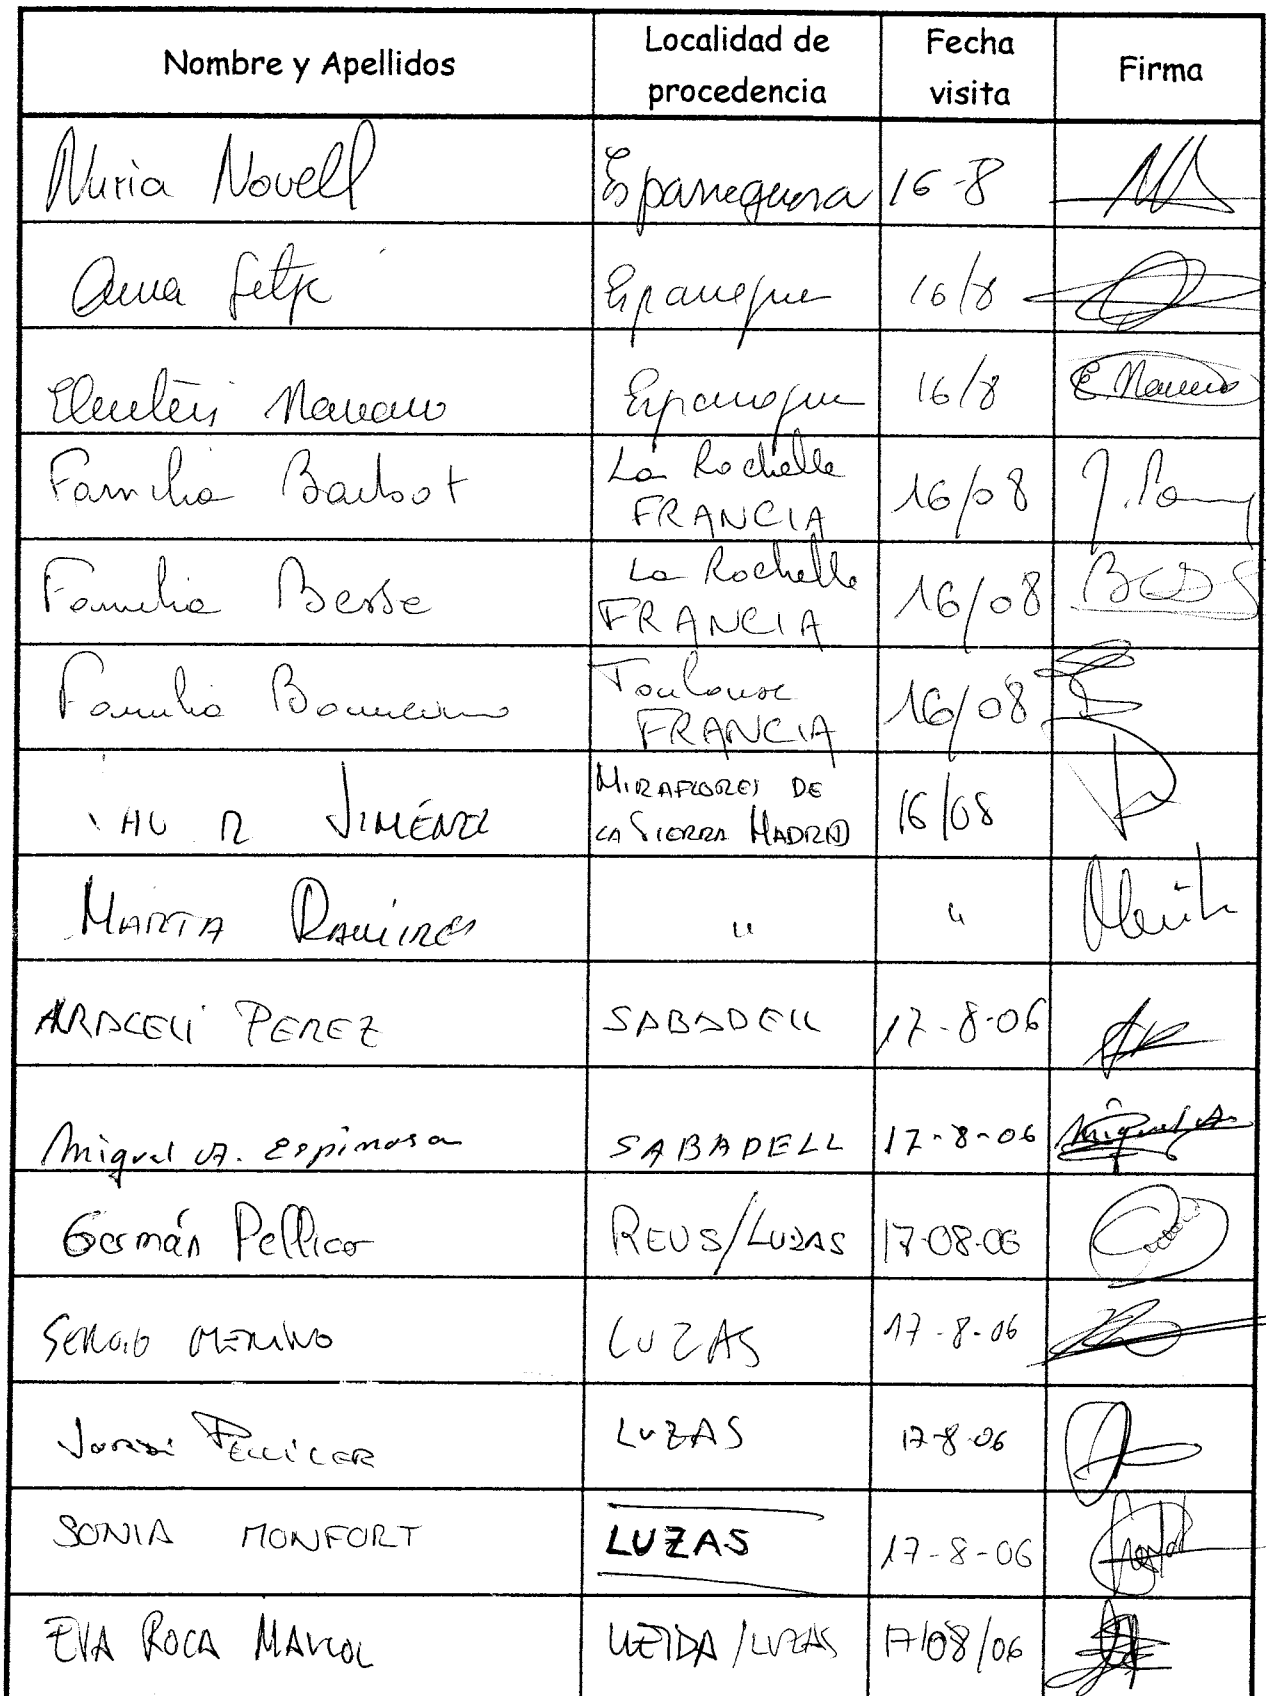 Nombre y Apellidos
Localidad de
procedencia
Fecha
visita
Firma
Nuria Novell Esparreguera 16-8
Anna 16/8
16/8 E. Navarro
Familia Barbot La Rochelle
FRANCIA 16/08
Familia Besse La Rochelle
FRANCIA 16/08
Familia Toulouse
FRANCIA 16/08
JIMÉNEZ MIRAFLORES DE
LA SIERRA MADRID 16/08
MARTA RAMIRES " "
ARACELI PEREZ SABADELL 17-8-06
Miguel A. Espinosa SABADELL 17-8-06 Miguel A.
Germán Pellicer REUS/LUZAS 17-08-06
SERGIO MERINO LUZAS 17-8-06
JORDI PELLICER LUZAS 17-8-06
SONIA MONFORT LUZAS 17-8-06
EVA ROCA LLEIDA/LUZAS 17/08/06